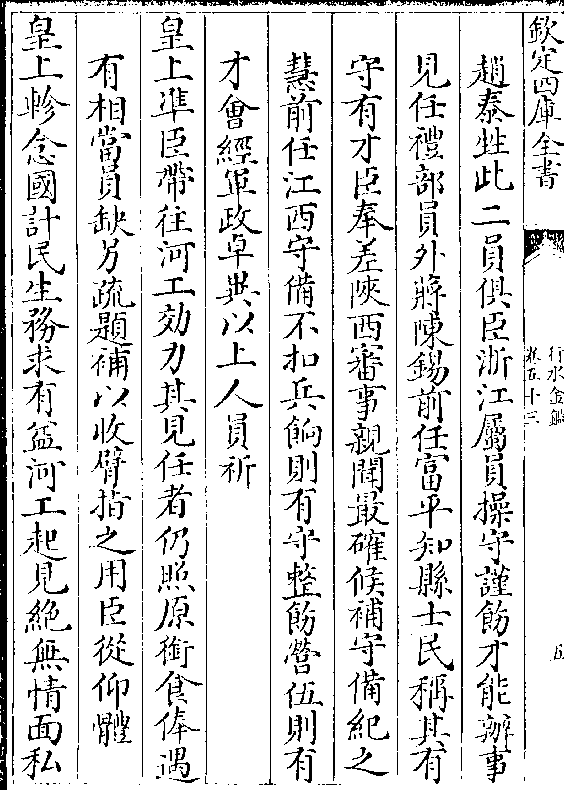 欽定四庫全書
行水金鑑
卷五十三
五
趙泰甡此二員俱臣浙江屬員操守謹飭才能辦事
見任禮部員外蔣陳錫前任富平知縣士民稱其有
守有才臣奉差陝西審事親聞最確候補守備紀之
慧前任江西守備不扣兵餉則有守整飭營伍則有
才會經軍政卓異以上人員祈
皇上准臣帶往河工効力其見任者仍照原銜食俸遇
有相當員缺另疏題補以收臂指之用臣從仰體
皇上軫念國計民生務求有益河工起見絶無情面私